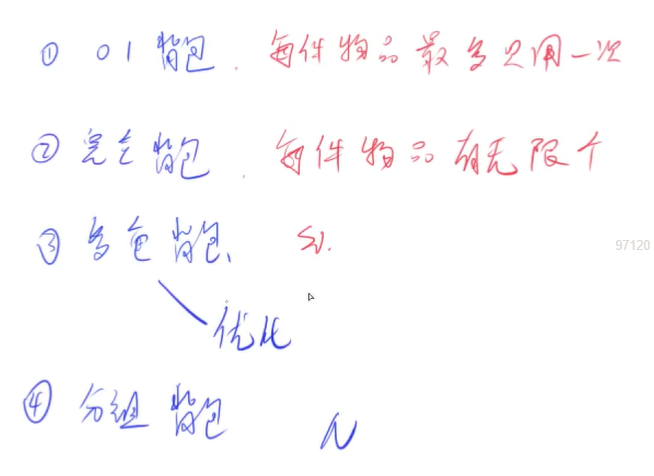 ① 01背包. 每件物品最多只用一次
② 完全背包. 每件物品有无限个
③ 多重背包、 Si.
97120
优化
④ 分组背包 N